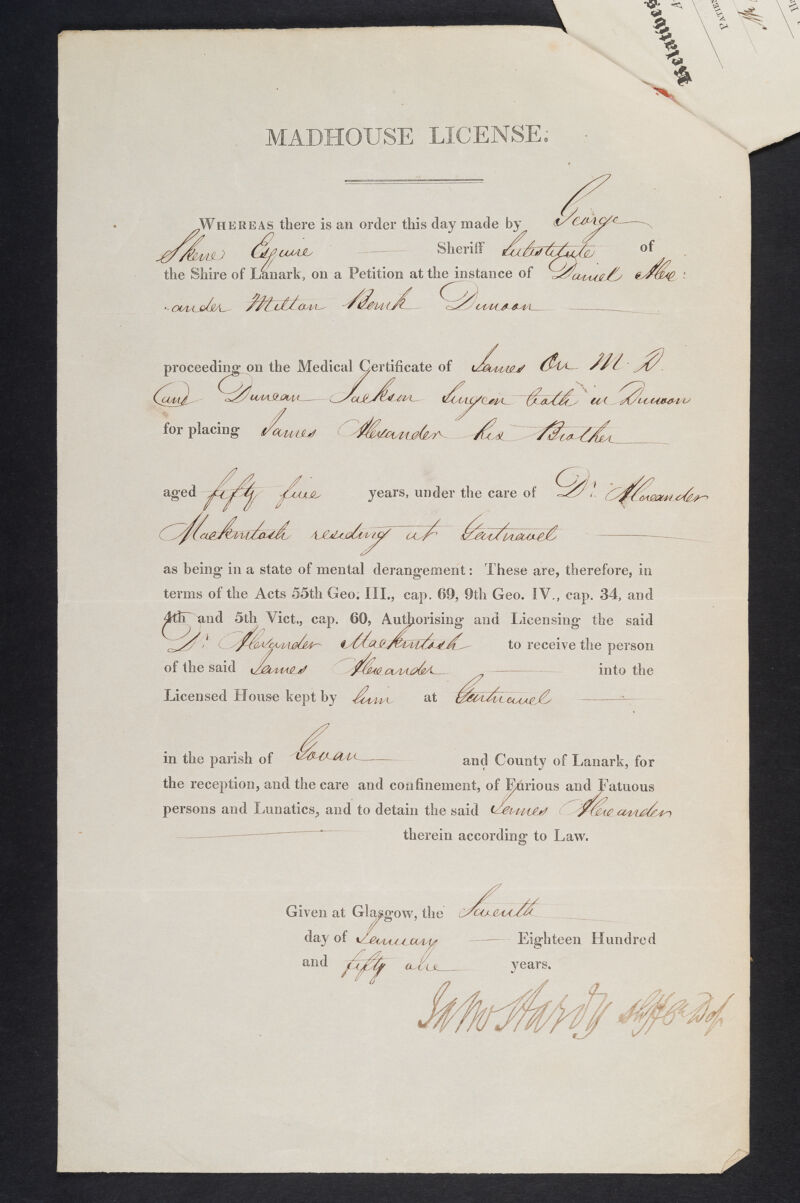 Relatives
MADHOUSE LICENSE.
WHEREAS there is an order this day made by George
Skene Esquire Sheriff Substitute of
the Shire of Lanark, on a Petition at the instance of Daniel Alex:
ander Milton Bank Dunoon
proceeding on the Medical Certificate of James Orr M. D.
and Duncan Jackson Surgeon both in Dunoon
for placing James Alexander his Brother
aged fifty five years, under the care of Dr. Alexander
Mackintosh residing at Gartnavel
as being in a state of mental derangement: These are, therefore, in
terms of the Acts 55th Geo. III., cap. 69, 9th Geo. IV., cap. 34, and
4th and 5th Vict., cap. 60, Authorising and Licensing the said
Dr. Alexander Mackintosh to receive the person
of the said James Alexander into the
Licensed House kept by him at Gartnavel
in the parish of Govan and County of Lanark, for
the reception, and the care and confinement, of Furious and Fatuous
persons and Lunatics, and to detain the said James Alexander
therein according to Law.
Given at Glasgow, the Seventh
day of January Eighteen Hundred
and fifty one years.
Hardy